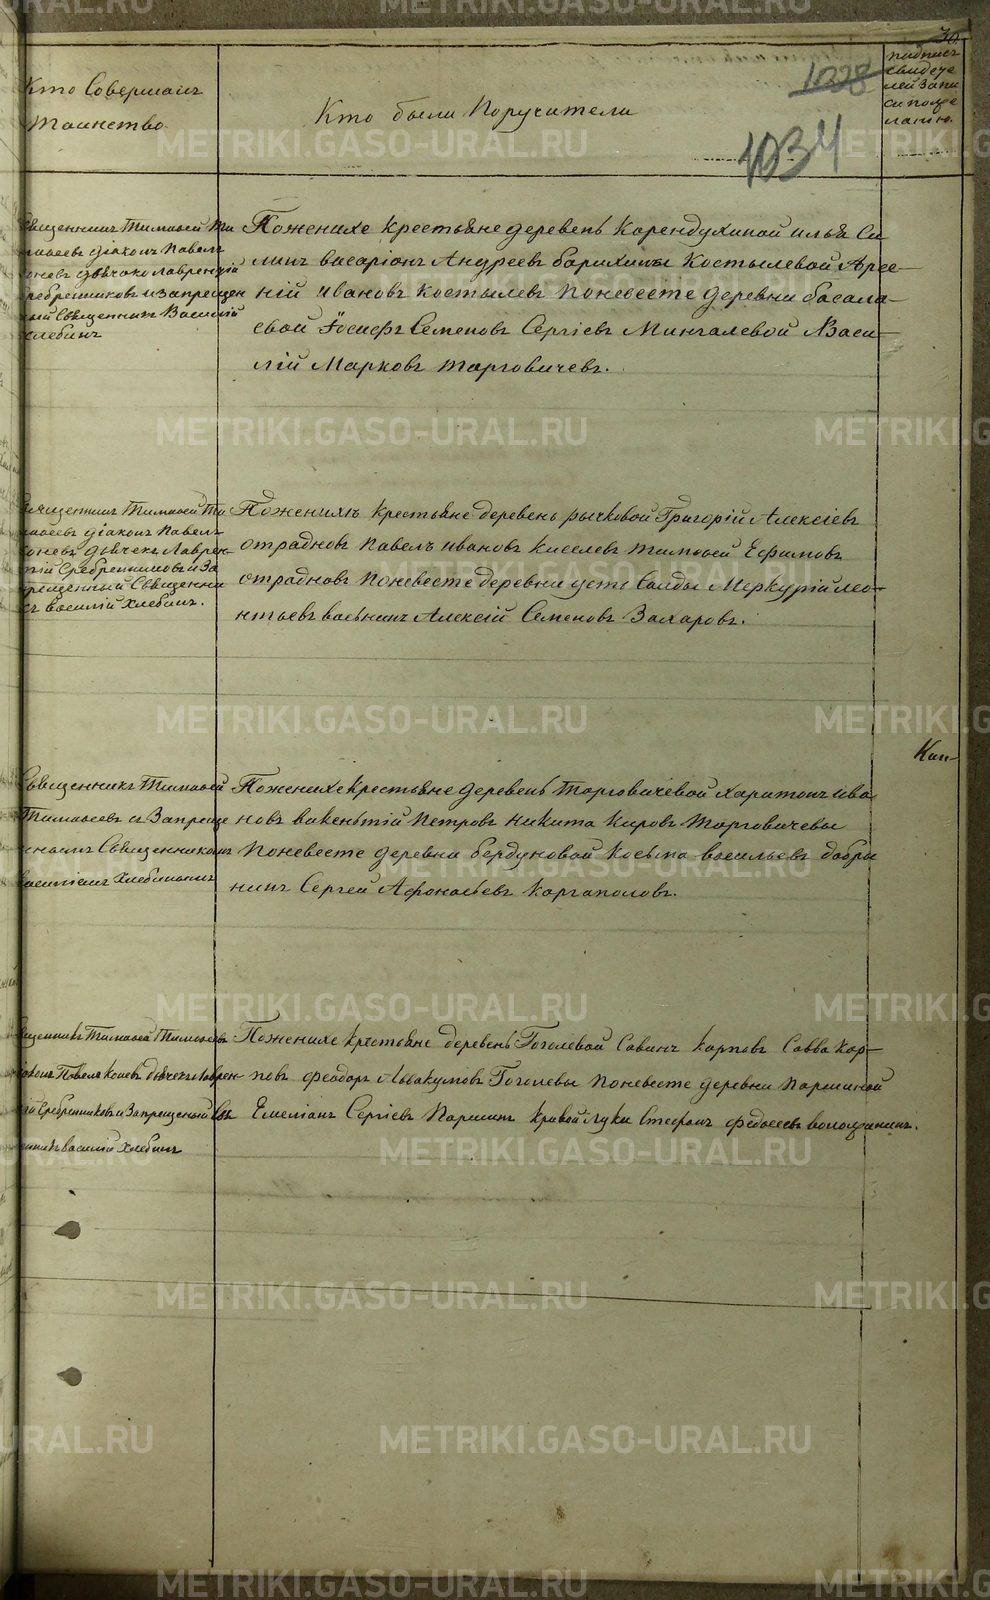 30
Кто Совершалъ
Таинство.
Кто были Поручители
1028
1034
подпись
свидете
лей Запи
си по же
ланію.
Священникъ Тимофей Ти
мофеевъ діаконъ Павелъ
Коневъ дьячекъ Лаврентій
Серебрениковъ и запрещен
ный Священникъ Василій
Хлебинъ
По женихе крестьяне деревень Карендухиной илья Си
линъ васаріонъ Андреевъ барихины Костылевой Арсе-
ній ивановъ Костылевъ По невесте деревни басала-
евой Іосифъ Семеновъ Сергіевъ Мингалевой Васи-
лій Марковъ Торговичевъ.
Священникъ Тимофей Ти
мофеевъ діаконъ Павелъ
Коневъ дьячекъ Лаврен-
тій Сребрениковъ и За
прещенный Священни
къ василій Хлебинъ.
По женихе крестьяне деревень рычковой Григорій Алексіевъ
отрадновъ Павелъ ивановъ Киселевъ Тимофей Ефимовъ
отрадновъ По невесте деревни усть Салды Меркурій лео-
нтьевъ Алексій Семеновъ Захаровъ.
Кап-
Священникъ Тимофей
Тимофеевъ и Запреще
ннымъ Священникомъ
Василіемъ Хлебинымъ
По женихе крестьяне деревень Торговичевой Харитонъ ива
новъ викентій Петровъ Никита Кировъ Торговичевы
По невесте деревни бердуновой Косьма васильевъ добры
нинъ Сергей Афонасьевъ Каргаполовъ.
Священникъ Тимофей Тимофеевъ
діаконъ Павелъ Коневъ дьячекъ Лаврен
тій Сребренниковъ и Запрещеный Свя
щенникъ василій Хлебинъ
По женихе крестьяне деревень Гоголевой Савинъ Карповъ Савва Кар-
повъ феодоръ Аввакумовъ Гоголевы По невесте деревни Паршиной
Емеліанъ Сергіевъ Паршинъ Кривой луки Стефанъ Федосеевъ вологжанинъ.